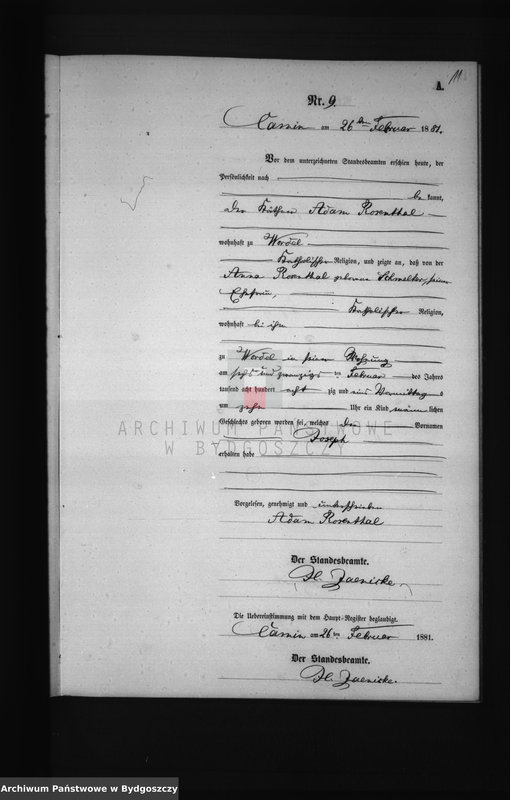 11
A.
Nr. 9.
Camin am 26ten Februar 1881.
Vor dem unterzeichneten Standesbeamten erschien heute, der
Persönlichkeit nach
be kannt,
der Käthner Adam Rosenthal
wohnhaft zu Wordel
katholischer Religion, und zeigte an, daß von der
Anna Rosenthal geborene Schmelter, seiner
Ehefrau,
katholischer Religion,
wohnhaft bei ihm
zu Wordel in seiner Wohnung
am sechs und zwanzigs ten Februar des Jahres
tausend acht hundert acht zig und eins Vormittags
um zehn Uhr ein Kind männ lichen
Geschlechts geboren worden sei, welches den Vornamen
Joseph
erhalten habe
Vorgelesen, genehmigt und unterschrieben
Adam Rosenthal
Der Standesbeamte.
Jaenicke.
Die Uebereinstimmung mit dem Haupt-Register beglaubigt.
Camin am 26 ten Februar 1881.
Der Standesbeamte.
Jaenicke.
ARCHIWUM PAŃSTWOWE
W BYDGOSZCZY
Archiwum Państwowe w Bydgoszczy